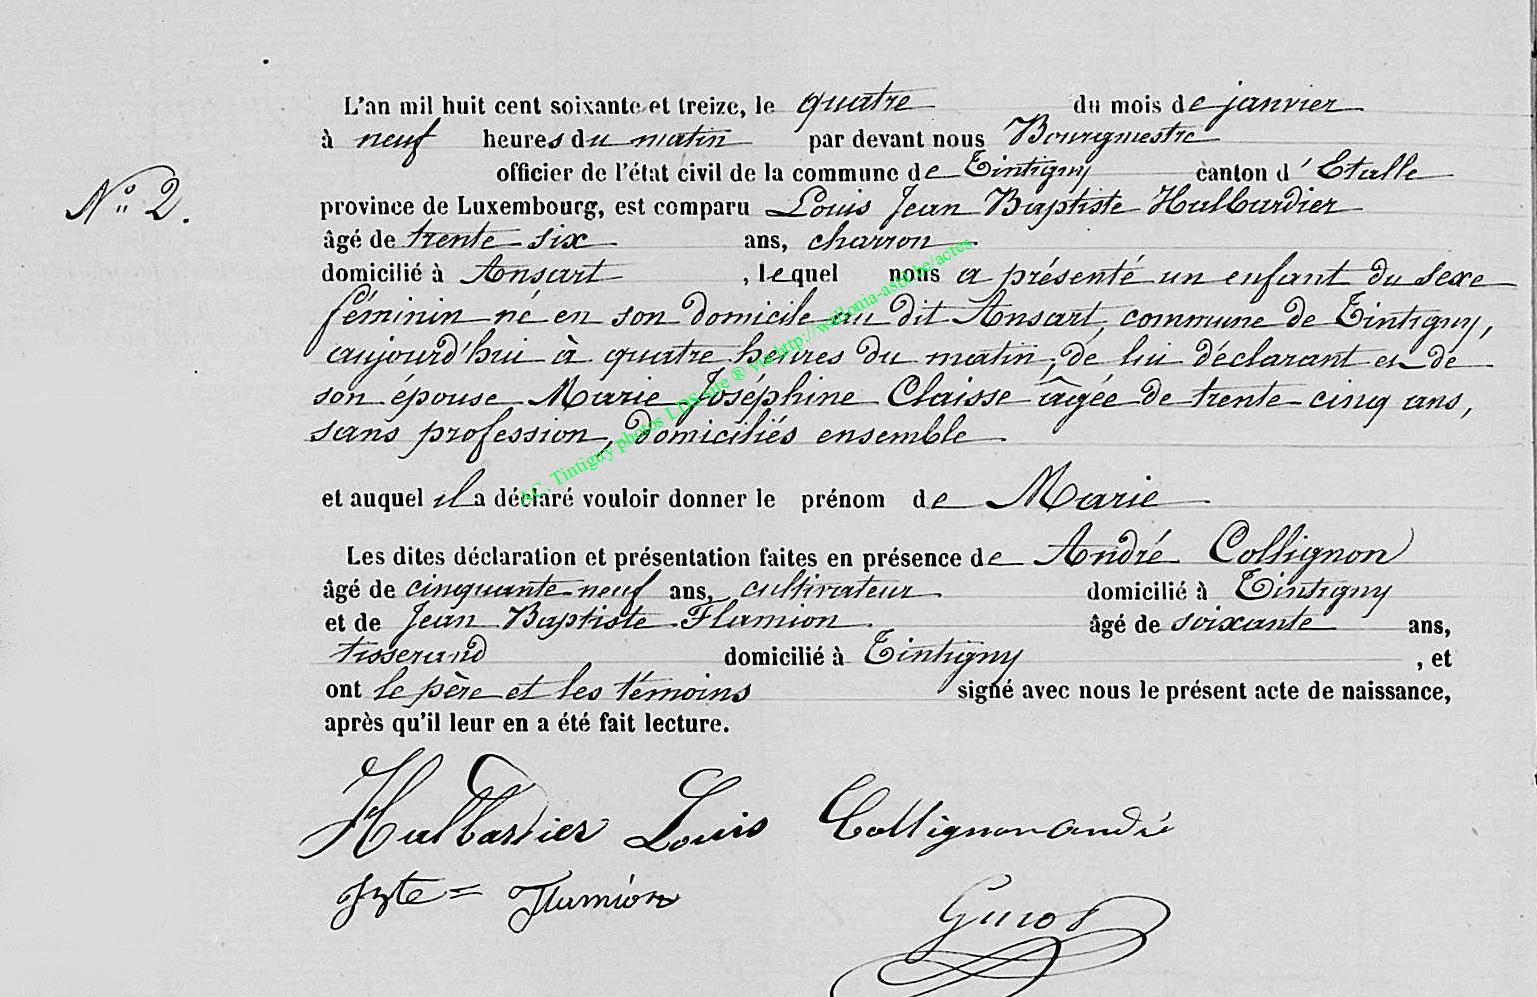 L'an mil huit cent soixante et treize, le quatre du mois de janvier
à neuf heures du matin par devant nous Bourgmestre
officier de l'état civil de la commune de Tintigny canton d'Etalle
N° 2.
province de Luxembourg, est comparu Louis Jean Baptiste Halbardier
âgé de trente-six ans, charron
domicilié à Ansart, lequel nous a présenté un enfant du sexe
féminin né en son domicile au dit Ansart, commune de Tintigny,
aujourd'hui à quatre heures du matin, de lui déclarant et de
son épouse Marie Joséphine Claisse âgée de trente-cinq ans,
sans profession, domiciliés ensemble
AC. Tintigny photos LDS site ® via http://wallonia-asbl.be/actes
et auquel il a déclaré vouloir donner le prénom de Marie
Les dites déclaration et présentation faites en présence de André Collignon
âgé de cinquante-neuf ans, cultivateur domicilié à Tintigny
et de Jean Baptiste Flamion âgé de soixante ans,
tisserand domicilié à Tintigny, et
ont le père et les témoins signé avec nous le présent acte de naissance,
après qu'il leur en a été fait lecture.
Halbardier Louis Collignon andré
Flamion